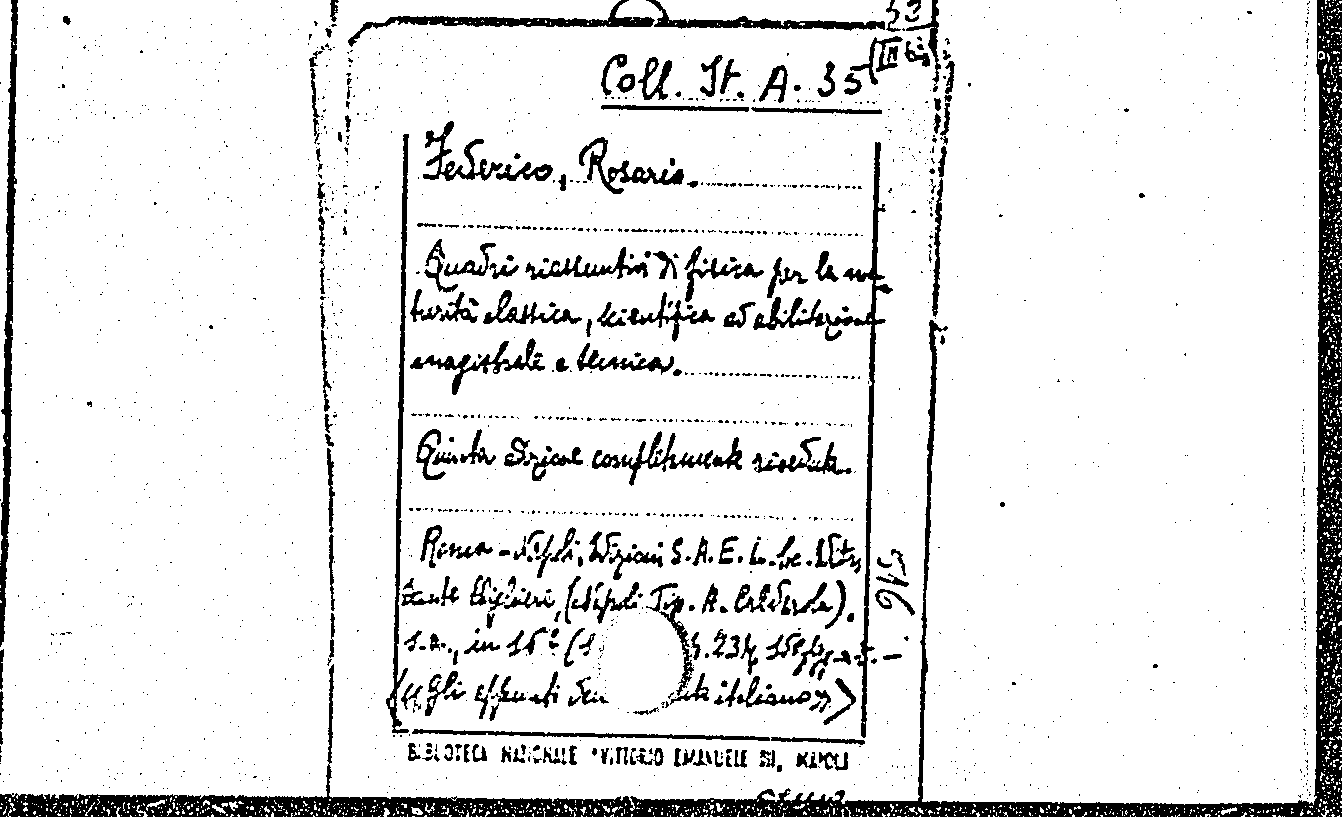 Coll. It. A. 35 (III bis
Federico, Rosario.
Quadri riassuntivi di fisica per la ma-
turità classica, scientifica ed abilitazione
magistrale e tecnica.
Quinta edizione completamente riveduta.
Roma - Napoli, Edizioni S. A. E. L.
Dante Alighieri, (Napoli Tip. A. Calderola).
s.a., in 16° (
"Gli appunti
italiano")
BIBLIOTECA NAZIONALE "VITTORIO EMANUELE III, NAPOLI